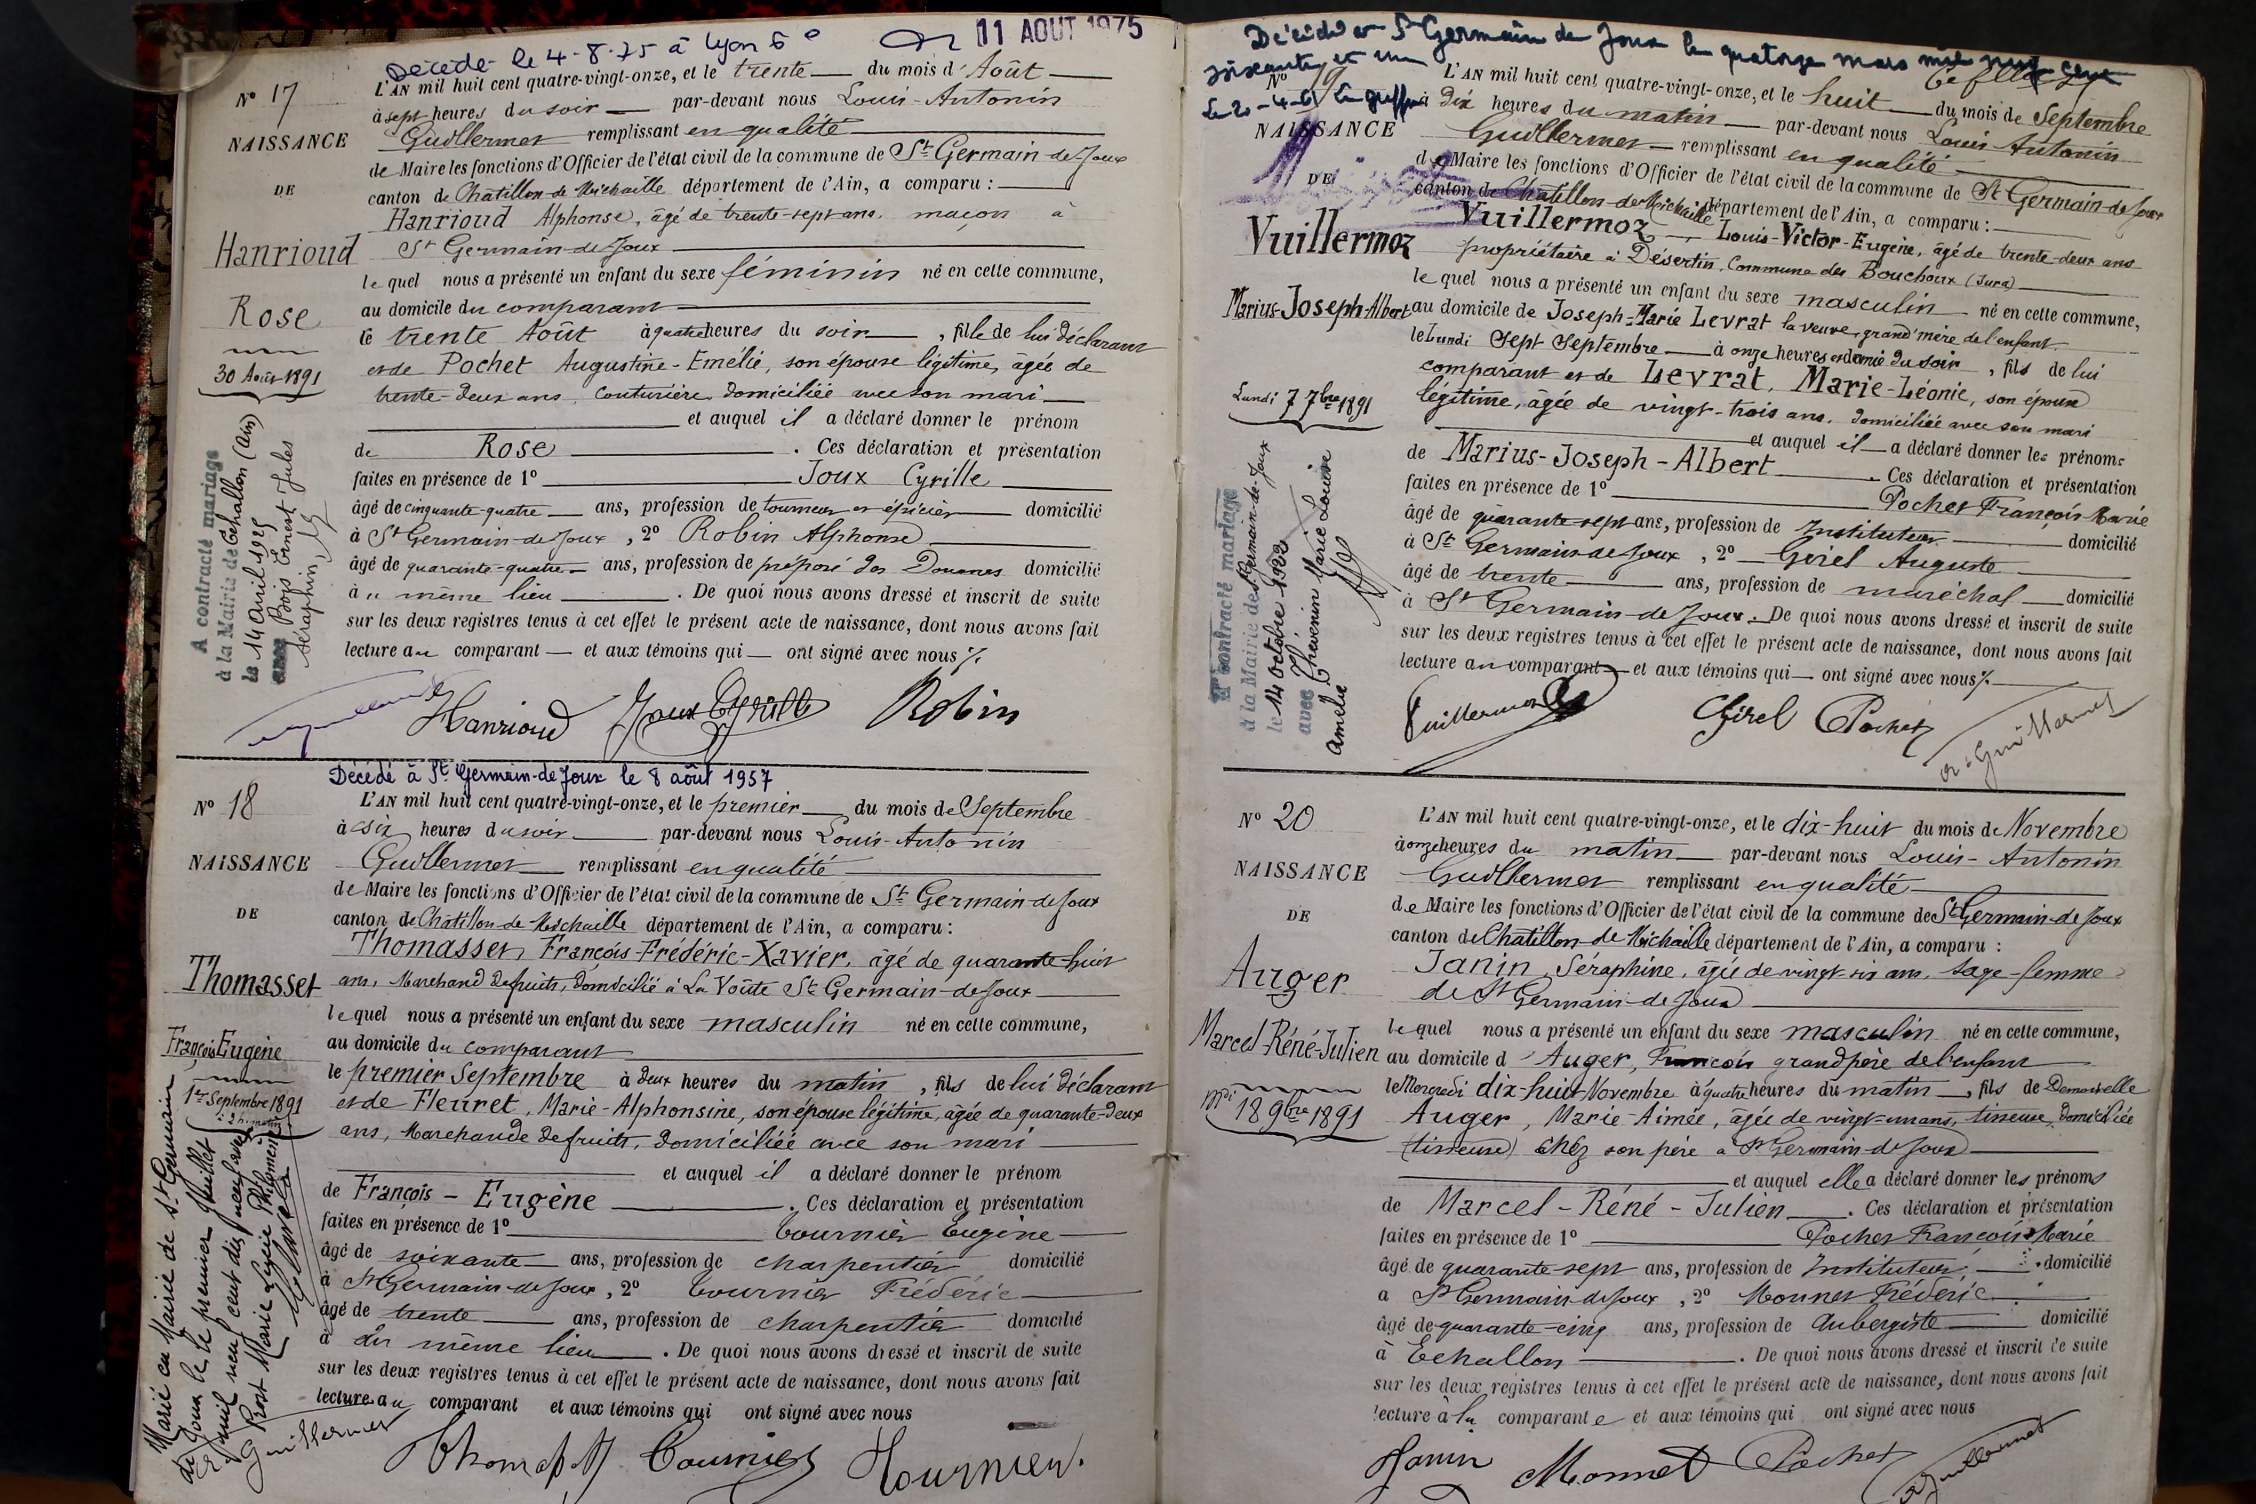 Décédé le 4-8-75 à Lyon 6e
11 AOUT 1975
N° 17
NAISSANCE
DE
Hanrioud
Rose
30 Août 1891
A contracté mariage
à la Mairie de Echallon (Ain)
le 14 Avril 1925
avec Bojs Ernest Jules
Séraphin
L'AN mil huit cent quatre-vingt-onze, et le trente du mois d'Août
à sept heures du soir par-devant nous Louis-Antonin
Guillermet remplissant en qualité
de Maire les fonctions d'Officier de l'état civil de la commune de St Germain-de-Joux
canton de Châtillon-de-Michaille département de l'Ain, a comparu :
Hanrioud Alphonse, âgé de trente-sept ans, maçon à
St Germain-de-Joux
lequel nous a présenté un enfant du sexe féminin né en cette commune,
au domicile du comparant
le trente Août à quatre heures du soir, fille de lui déclarant
et de Pochet Augustine-Emélie, son épouse légitime, âgée de
trente-deux ans, couturière domiciliée avec son mari
et auquel il a déclaré donner le prénom
de Rose. Ces déclaration et présentation
faites en présence de 1° Joux Cyrille
âgé de cinquante-quatre ans, profession de tourneur et épicier domicilié
à St Germain-de-Joux, 2° Robin Alphonse
âgé de quarante-quatre ans, profession de préposé des Douanes domicilié
au même lieu. De quoi nous avons dressé et inscrit de suite
sur les deux registres tenus à cet effet le présent acte de naissance, dont nous avons fait
lecture au comparant et aux témoins qui ont signé avec nous ./.
Hanrioud Joux Cyrille Robin
Décédé à St Germain-de-Joux le 8 août 1957
N° 18
NAISSANCE
DE
Thomasset
François Eugène
1er Septembre 1891
à 2 h. matin
Marié en Mairie de St Germain
de Joux le premier Juillet
mil neuf cent dix neuf avec
Prost Marie Lydie Philomène
Guillermet
L'AN mil huit cent quatre-vingt-onze, et le premier du mois de Septembre
à six heures du soir par-devant nous Louis-Antonin
Guillermet remplissant en qualité
de Maire les fonctions d'Officier de l'état civil de la commune de St Germain-de-Joux
canton de Châtillon-de-Michaille département de l'Ain, a comparu :
Thomasset, François-Frédéric-Xavier, âgé de quarante-huit
ans, Marchand de fruits, domicilié à La Voûte St Germain-de-Joux
lequel nous a présenté un enfant du sexe masculin né en cette commune,
au domicile du comparant
le premier Septembre à deux heures du matin, fils de lui déclarant
et de Fleuret, Marie-Alphonsine, son épouse légitime, âgée de quarante-deux
ans, Marchande de fruits, domiciliée avec son mari
et auquel il a déclaré donner le prénom
de François-Eugène. Ces déclaration et présentation
faites en présence de 1° Tournier Eugène
âgé de soixante ans, profession de charpentier domicilié
à St Germain-de-Joux, 2° Tournier Frédéric
âgé de trente ans, profession de charpentier domicilié
à du même lieu. De quoi nous avons dressé et inscrit de suite
sur les deux registres tenus à cet effet le présent acte de naissance, dont nous avons fait
lecture au comparant et aux témoins qui ont signé avec nous
Thomasset Tournier Tournier.
Décédé à St Germain de Joux le quatorze mars mil neuf cent
soixante et un
Le 20-4-61 Le greffier
N° 19
NAISSANCE
DE
Vuillermoz
Marius-Joseph-Albert
Lundi 7 7bre 1891
A contracté mariage
à la Mairie de St Germain-de-Joux
le 14 Octobre 1922
avec Thévenin Marie Louise
Amélie
L'AN mil huit cent quatre-vingt-onze, et le huit du mois de Septembre
à dix heures du matin par-devant nous Louis Antonin
Guillermet remplissant en qualité
de Maire les fonctions d'Officier de l'état civil de la commune de St Germain-de-Joux
canton de Châtillon-de-Michaille département de l'Ain, a comparu :
Vuillermoz, Louis-Victor-Eugène, âgé de trente-deux ans
propriétaire à Désertin, Commune des Bouchoux (Jura)
lequel nous a présenté un enfant du sexe masculin né en cette commune,
au domicile de Joseph-Marie Levrat la veuve, grand'mère de l'enfant
le Lundi Sept Septembre à onze heures et demie du soir, fils de lui
comparant et de Levrat, Marie-Léonie, son épouse
légitime, âgée de vingt-trois ans, domiciliée avec son mari
et auquel il a déclaré donner les prénoms
de Marius-Joseph-Albert. Ces déclaration et présentation
faites en présence de 1° Pochet François-Marie
âgé de quarante-sept ans, profession de Instituteur domicilié
à St Germain-de-Joux, 2° Girel Auguste
âgé de trente ans, profession de maréchal domicilié
à St Germain-de-Joux. De quoi nous avons dressé et inscrit de suite
sur les deux registres tenus à cet effet le présent acte de naissance, dont nous avons fait
lecture au comparant et aux témoins qui ont signé avec nous ./.
Vuillermoz Girel Pochet Guillermet
N° 20
NAISSANCE
DE
Auger
Marcel-Réné-Julien
18 9bre 1891
L'AN mil huit cent quatre-vingt-onze, et le dix-huit du mois de Novembre
à onze heures du matin par-devant nous Louis-Antonin
Guillermet remplissant en qualité
de Maire les fonctions d'Officier de l'état civil de la commune de St Germain-de-Joux
canton de Châtillon-de-Michaille département de l'Ain, a comparu :
Janin, Séraphine, âgée de vingt-six ans, sage-femme
de St Germain-de-Joux
lequel nous a présenté un enfant du sexe masculin né en cette commune,
au domicile d'Auger, François grand père de l'enfant
le Mercredi dix-huit Novembre à quatre heures du matin, fils de Demoiselle
Auger, Marie-Aimée, âgée de vingt-un ans, tisseuse, domiciliée
(tisseuse) chez son père à St Germain-de-Joux
et auquel elle a déclaré donner les prénoms
de Marcel-Réné-Julien. Ces déclaration et présentation
faites en présence de 1° Pochet François-Marie
âgé de quarante-sept ans, profession de Instituteur, domicilié
à St Germain-de-Joux, 2° Monnet Frédéric
âgé de quarante-cinq ans, profession de Aubergiste domicilié
à Echallon. De quoi nous avons dressé et inscrit de suite
sur les deux registres tenus à cet effet le présent acte de naissance, dont nous avons fait
lecture à la comparante et aux témoins qui ont signé avec nous
Janin Monnet Pochet Guillermet